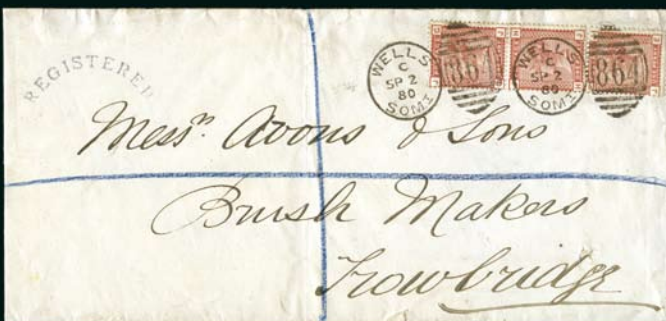 REGISTERED
WELLS
C
SP 2
80
SOMT
864
WELLS
C
SP 2
80
SOMT
864
Messrs. Avons & Sons
Brush Makers
Trowbridge